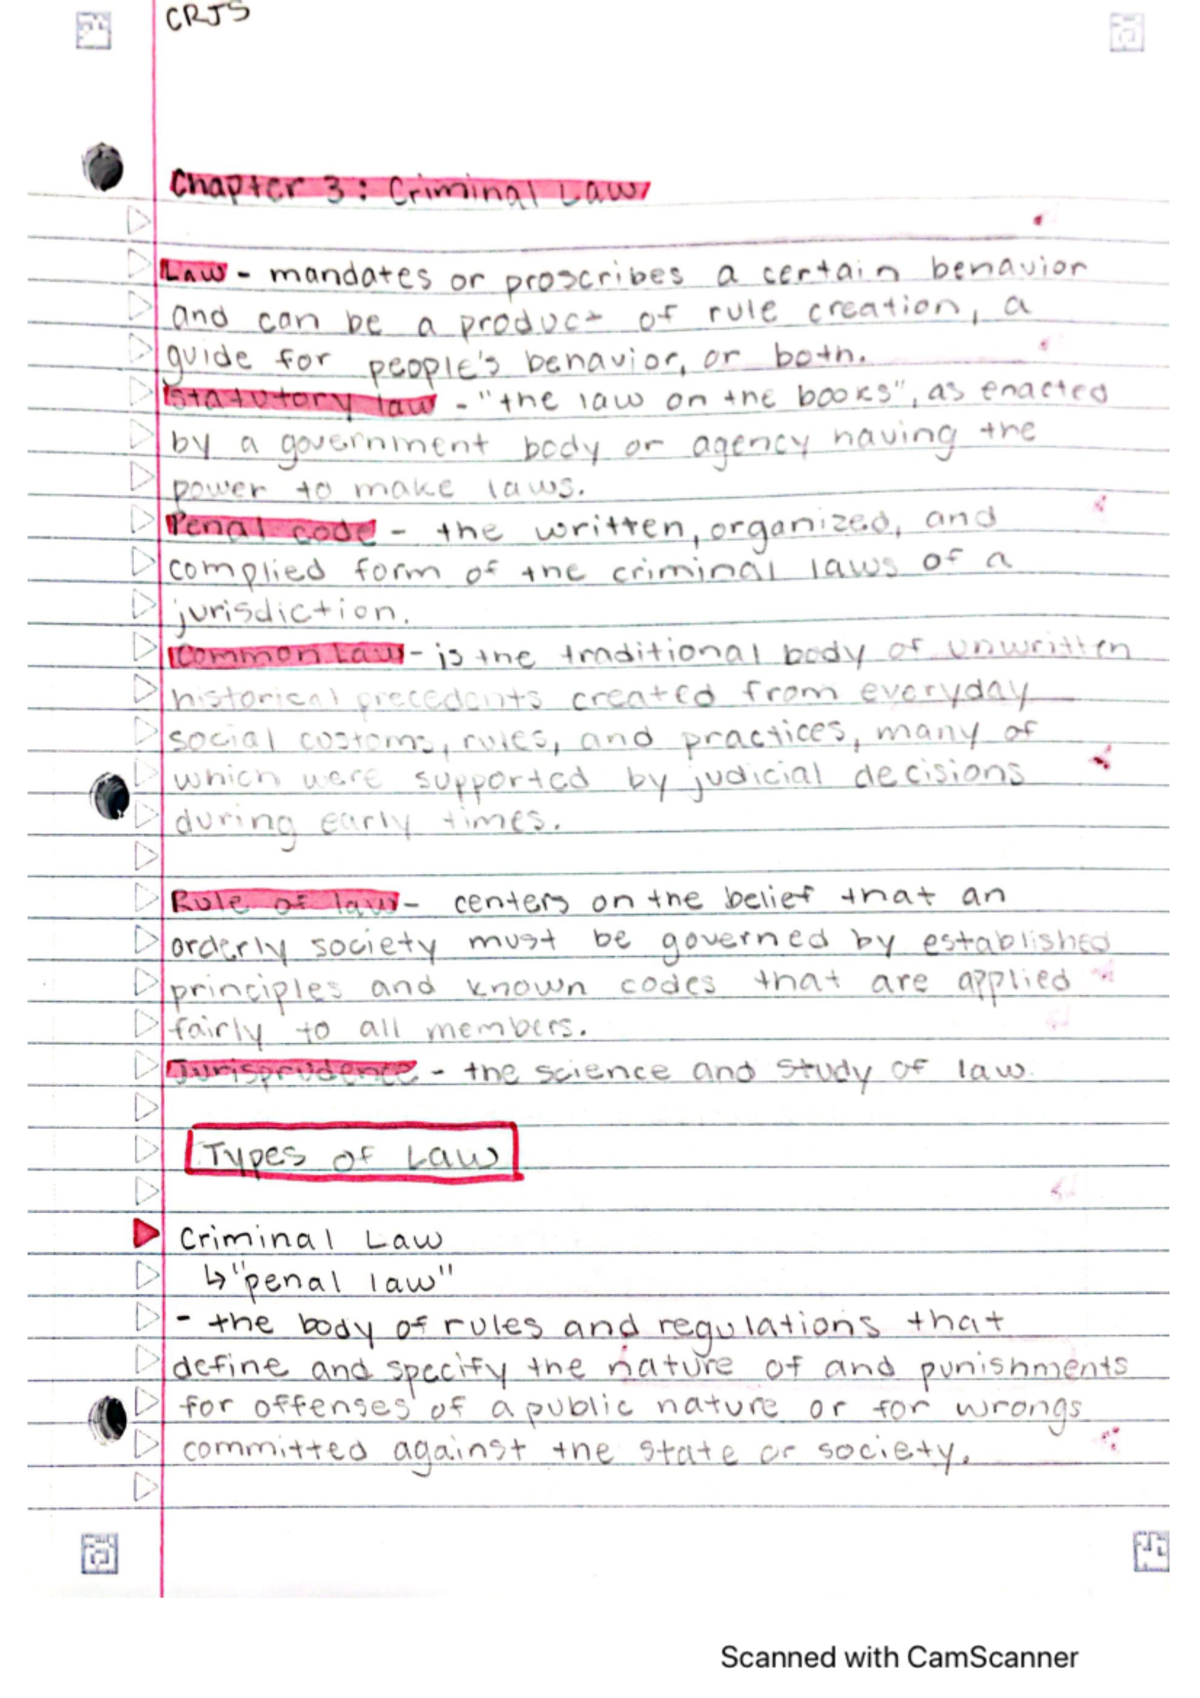 CRJS
Chapter 3: Criminal Law
Law - mandates or proscribes a certain behavior
and can be a product of rule creation, a
guide for people's behavior, or both.
Statutory law - "the law on the books", as enacted
by a government body or agency having the
power to make laws.
Penal code - the written, organized, and
complied form of the criminal laws of a
jurisdiction.
Common Law - is the traditional body of unwritten
historical precedents created from everyday
social customs, rules, and practices, many of
which were supported by judicial decisions
during early times.
Rule of law - centers on the belief that an
orderly society must be governed by established
principles and known codes that are applied
fairly to all members.
Jurisprudence - the science and study of law.
Types of Law
Criminal Law
↳"penal law"
- the body of rules and regulations that
define and specify the nature of and punishments
for offenses of a public nature or for wrongs
committed against the state or society.
Scanned with CamScanner